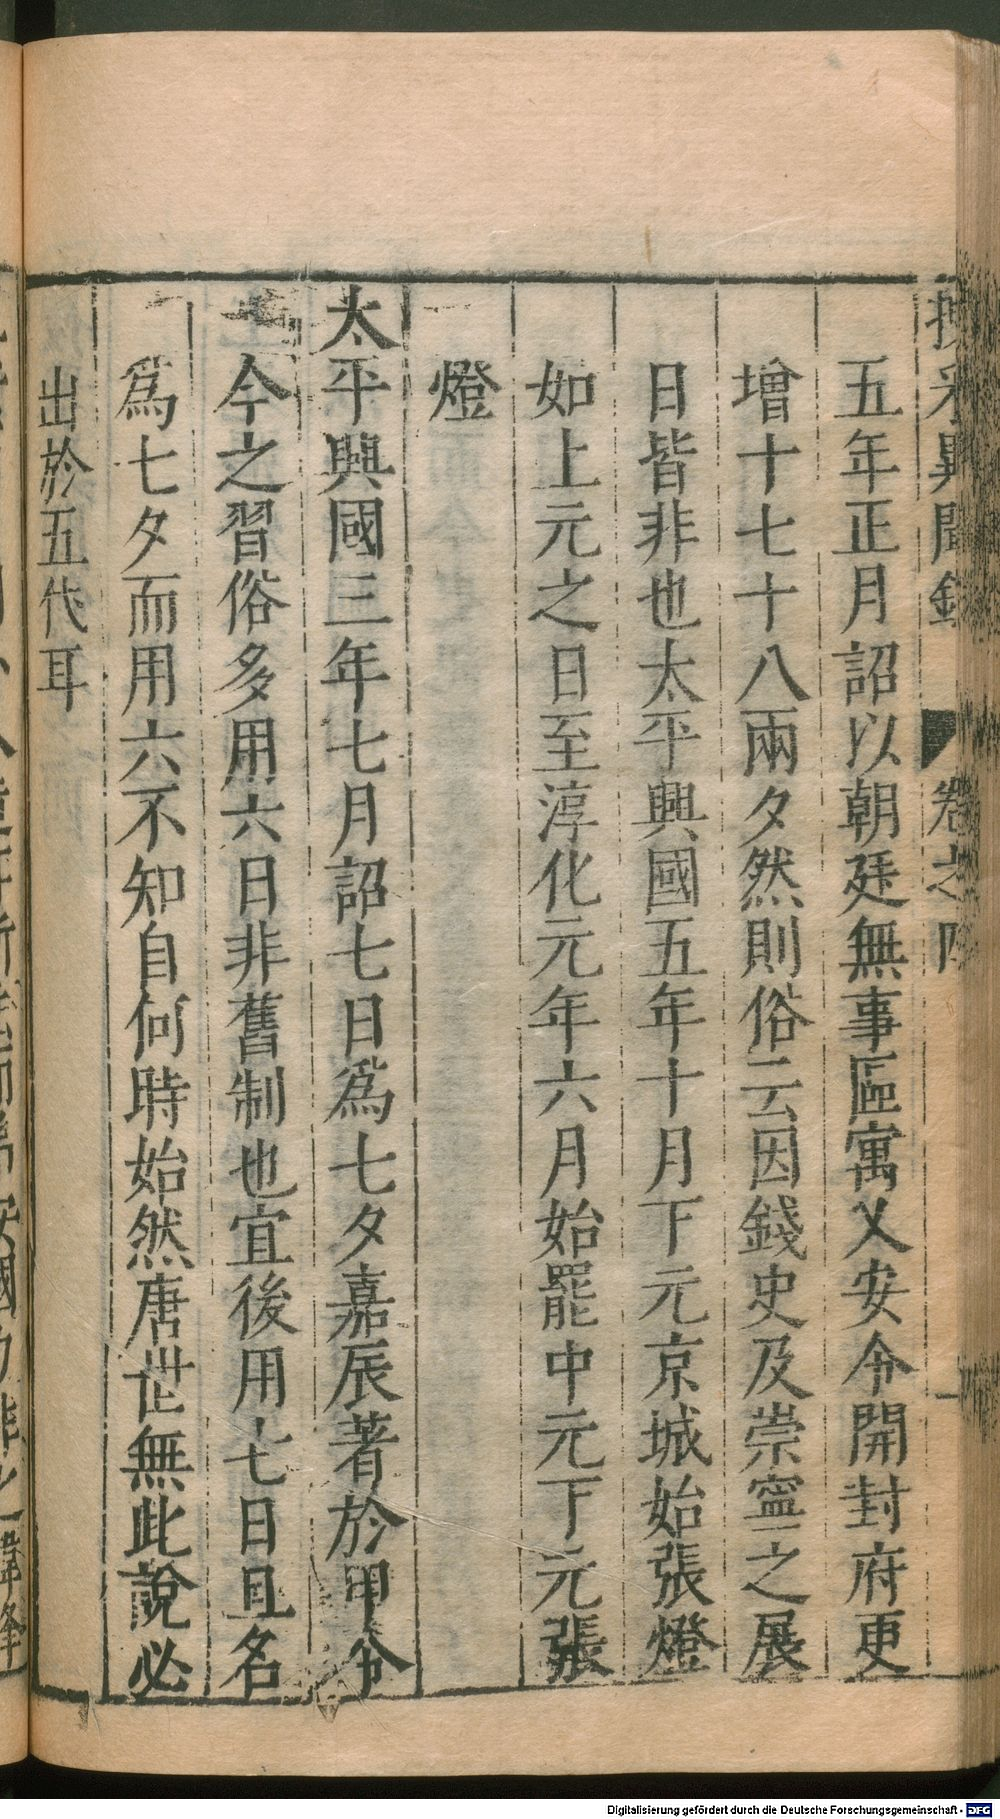 採異聞錄 卷之四 一
五年正月詔以朝廷無事區寓乂安令開封府更
增十七十八兩夕然則俗云因錢史及崇寧之展
日皆非也太平興國五年十月下元京城始張燈
如上元之日至淳化元年六月始罷中元下元張
燈
太平興國三年七月詔七日爲七夕嘉辰著於甲令
今之習俗多用六日非舊制也宜後用七日且名
爲七夕而用六不知自何時始然唐世無此說必
出於五代耳
Digitalisierung gefördert durch die Deutsche Forschungsgemeinschaft - DFG